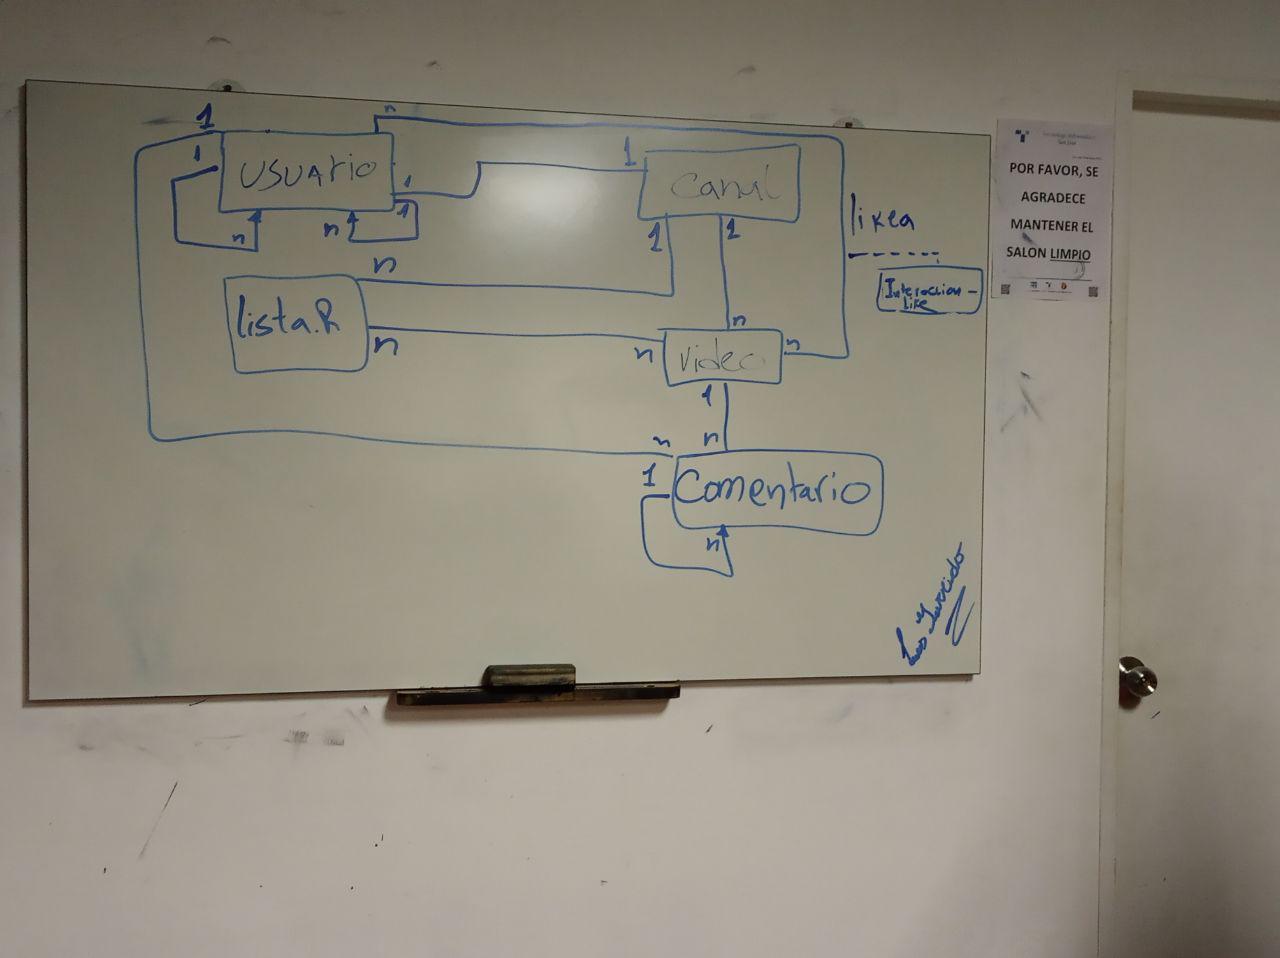 1
n
1
USUArio
1
1
n
n
1
Canal
1
1
likea
Interaccion-
Like
n
lista.R
n
n
n
video
n
1
n
n
1
Comentario
n
POR FAVOR, SE
AGRADECE
MANTENER EL
SALON LIMPIO